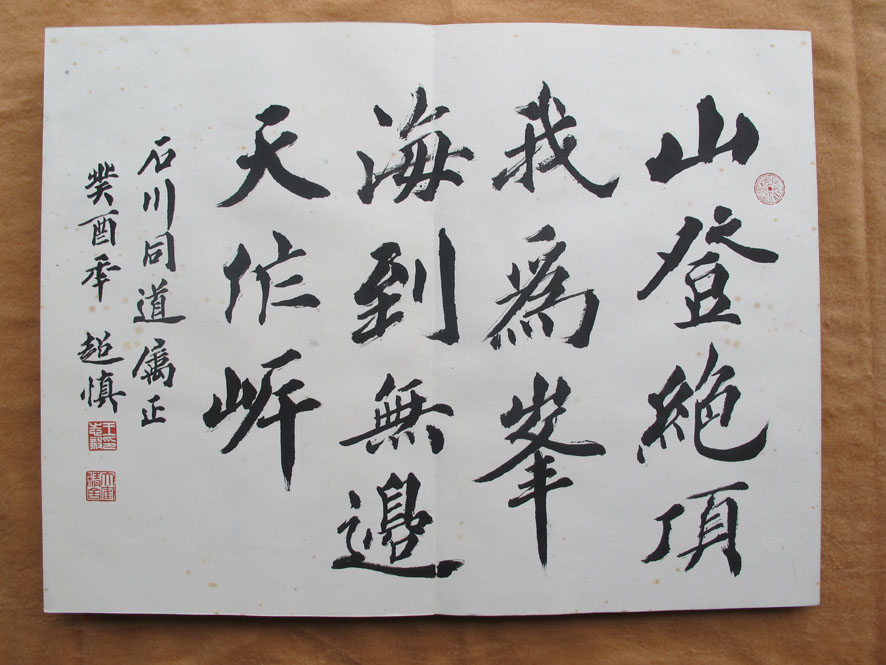 山登絶頂
我為峯
海到無邊
天作岍
石川同道属正
癸酉季 超慎